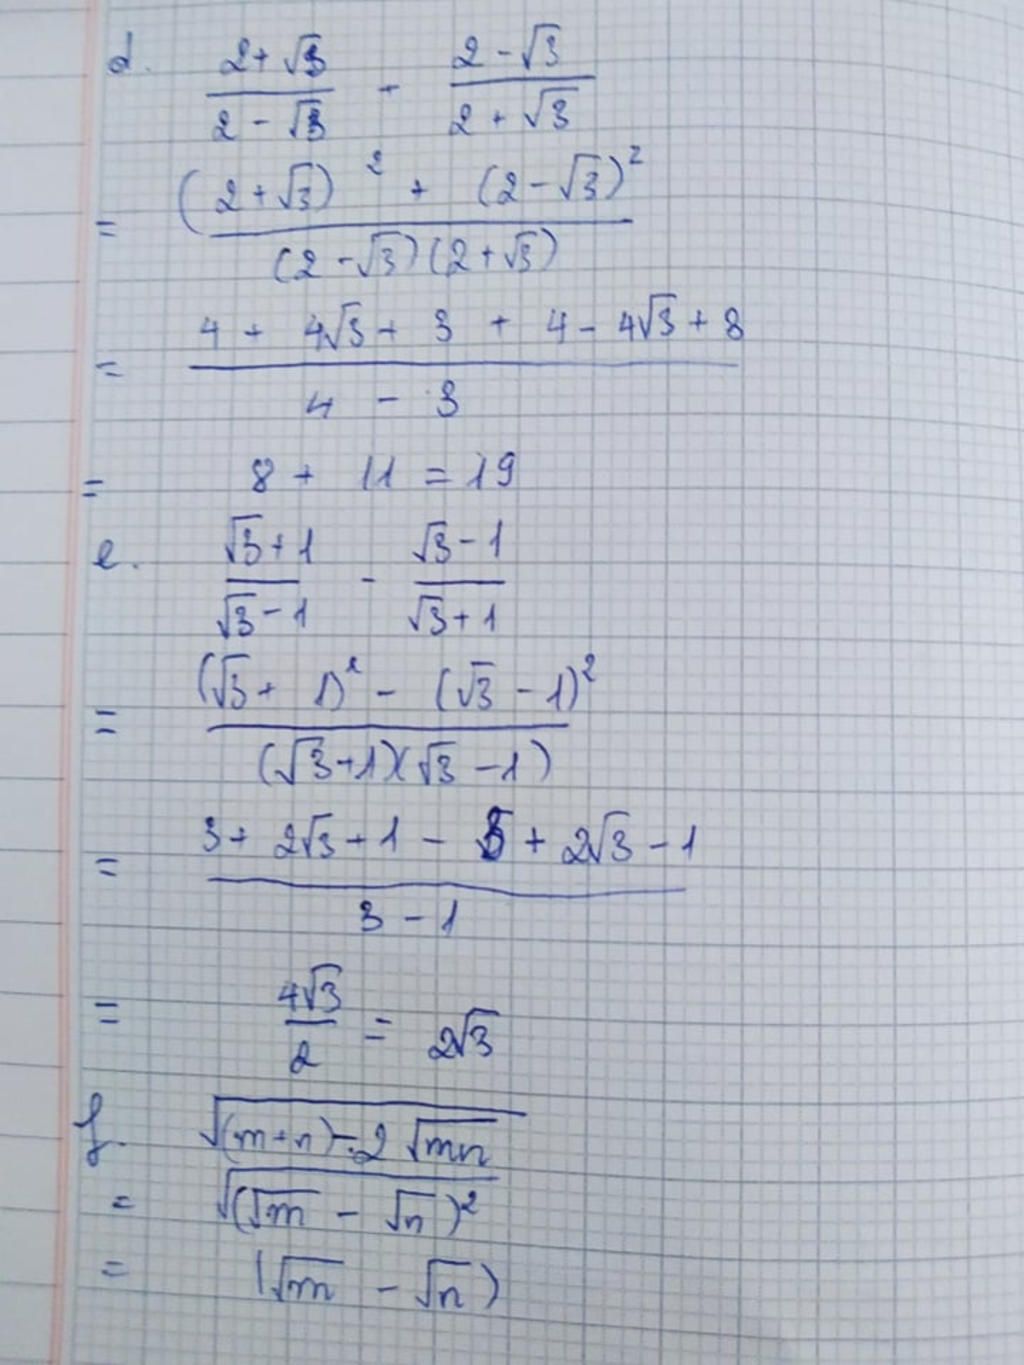 d. (2+√3)/(2-√3) + (2-√3)/(2+√3)
= ((2+√3)² + (2-√3)²)/((2-√3)(2+√3))
= (4 + 4√3 + 3 + 4 - 4√3 + 8)/(4 - 3)
= 8 + 11 = 19
e. (√3+1)/(√3-1) - (√3-1)/(√3+1)
= ((√3+1)² - (√3-1)²)/((√3+1)(√3-1))
= (3+ 2√3+1 - 3 + 2√3 -1)/(3-1)
= 4√3/2 = 2√3
f. √((m+n)-2√mn)
= √((√m - √n)²)
= (√m - √n)